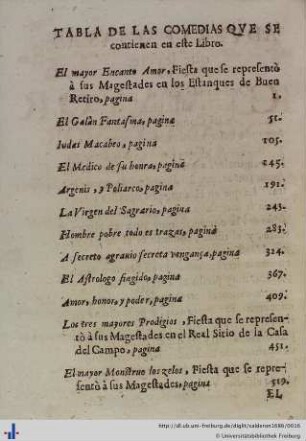 TABLA DE LAS COMEDIAS QVE SE
contienen en este Libro.
El mayor Encanto Amor, Fiesta que se representò
à sus Magestades en los Estanques de Buen
Retiro, pagina 1.
El Galàn Fantasma, pagina 51.
Iudas Macabeo, pagina 105.
El Medico de su honra, pagina 145.
Argenis, y Poliarco, pagina 191.
La Virgen del Sagrario, pagina 243.
Hombre pobre todo es trazas, pagina 283.
A secreto agrauio secreta vengança, pagina 324.
El Astrologo fingido, pagina 367.
Amor, honor, y poder, pagina 409.
Los tres mayores Prodigios, Fiesta que se represen-
tò à sus Magestades en el Real Sitio de la Casa
del Campo, pagina 451.
El mayor Monstruo los zelos, Fiesta que se repre-
sentò à sus Magestades, pagina 519.
EL
http://dl.ub.uni-freiburg.de/diglit/calderon1686/0016
© Universitätsbibliothek Freiburg